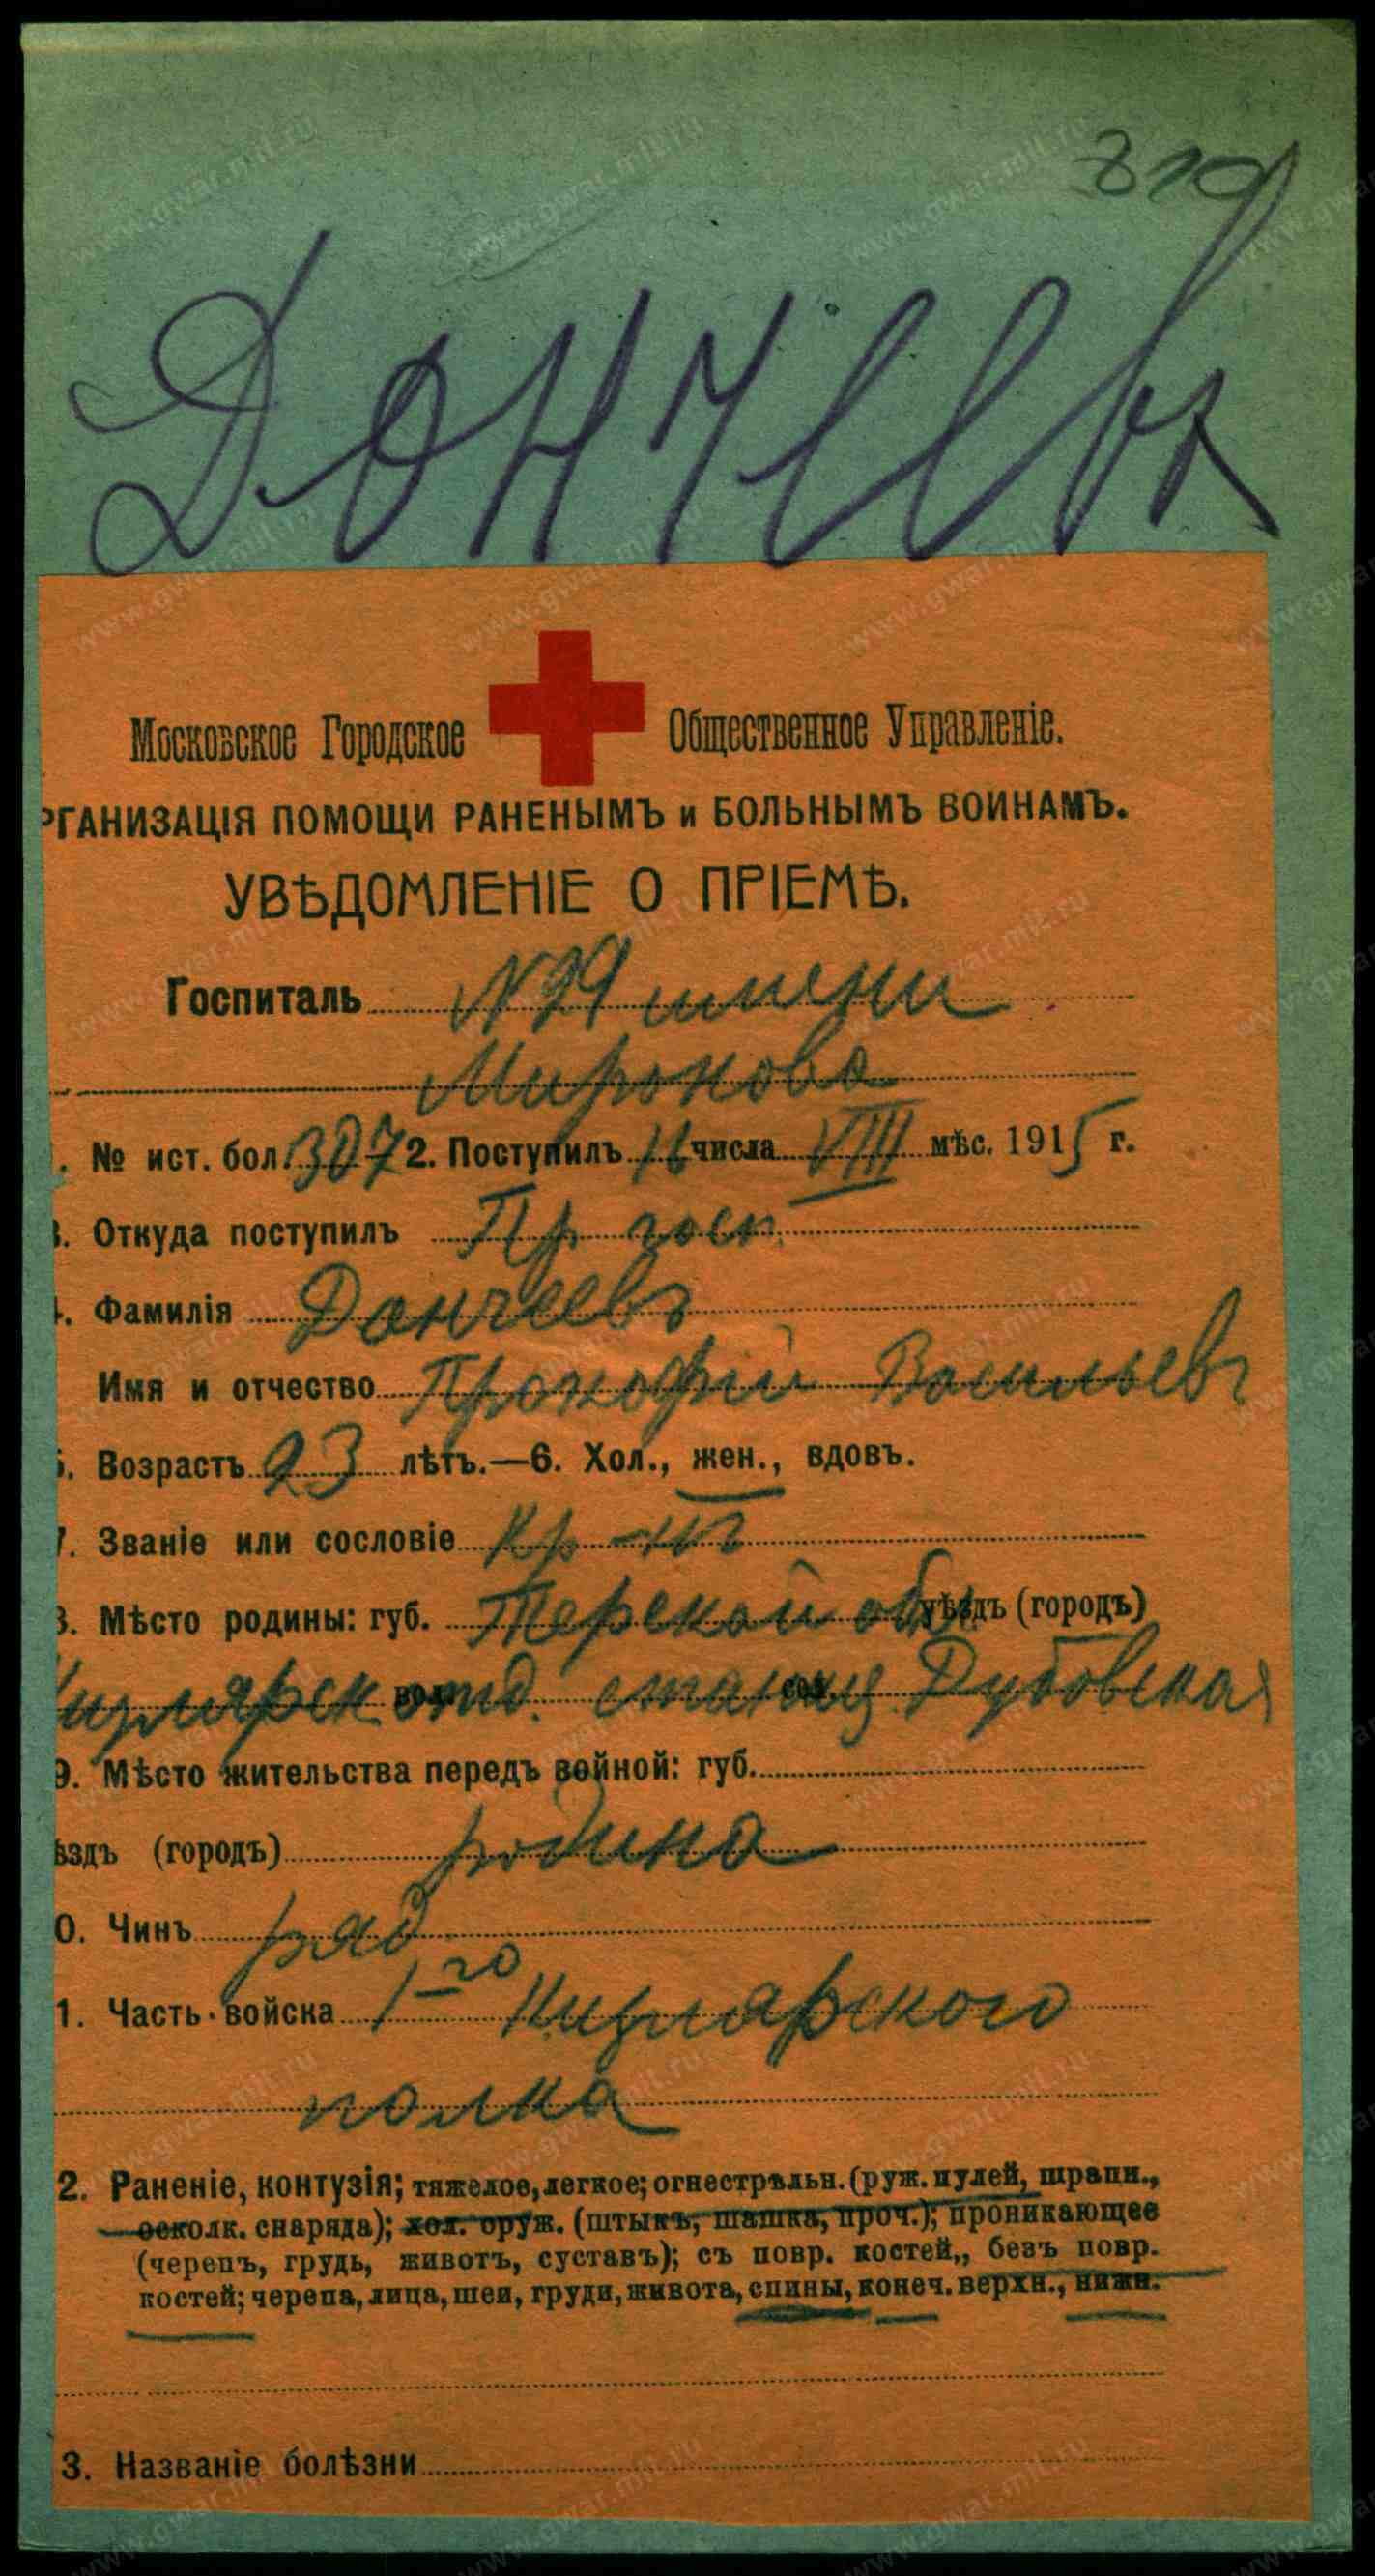 Дончеевъ
Московское Городское Общественное Управленіе.
РГАНИЗАЦІЯ ПОМОЩИ РАНЕНЫМЪ и БОЛЬНЫМЪ ВОИНАМЪ.
УВѢДОМЛЕНІЕ О ПРІЕМѢ.
Госпиталь № 99 имени
Миронова
. № ист. бол. 307 2. Поступилъ 16 числа VIII мѣс. 1915 г.
3. Откуда поступилъ Пр. госп.
4. Фамилія Дончеевъ
Имя и отчество Прокофій Васильев
5. Возрастъ 23 лѣтъ.—6. Хол., жен., вдовъ.
7. Званіе или сословіе кр-нъ
8. Мѣсто родины: губ. Терской обл. уѣздъ (городъ)
Кизлярск. вол. отд. станиц. сел. Дубовская
9. Мѣсто жительства передъ войной: губ.
ѣздъ (городъ) родина
0. Чинъ ряд.
1. Часть войска 1го Кизлярского
полка
2. Раненіе, контузія; тяжелое, легкое; огнестрѣльн. (руж. пулей, шрапн.,
осколк. снаряда); хол. оруж. (штыкъ, шашка, проч.); проникающее
(черепъ, грудь, животъ, суставъ); съ повр. костей,, безъ повр.
костей; черепа, лица, шеи, груди, живота, спины, конеч. верхн., нижн.
3. Названіе болѣзни
www.gwar.mil.ru